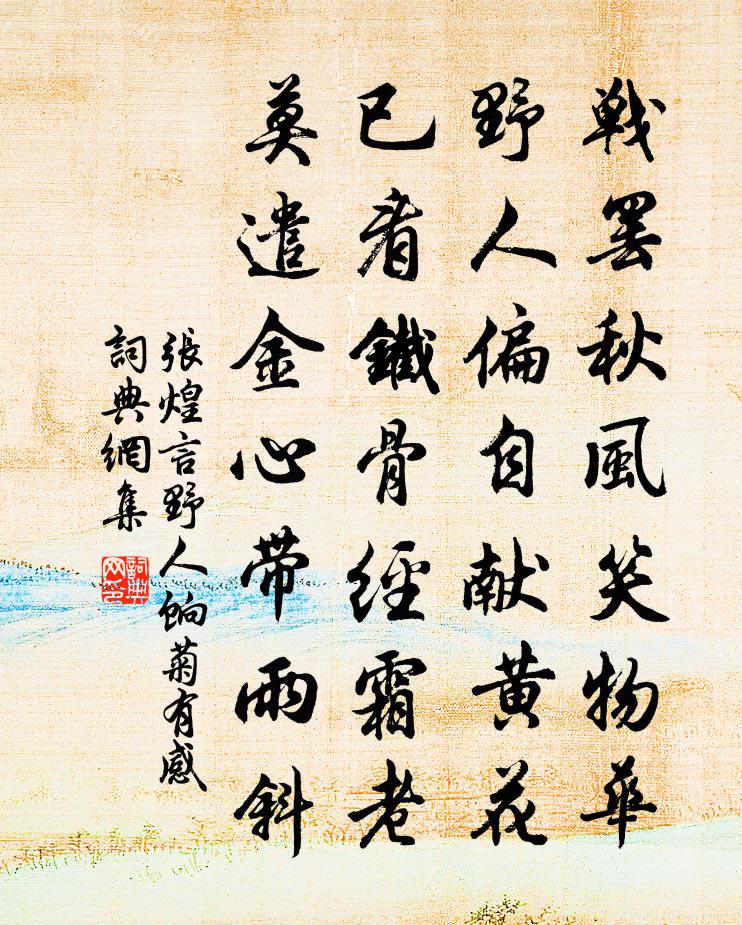 戦罢秋風笑物華
野人偏自献黄花
已看鐵骨經霜老
莫遣金心带雨斜
張煌言野人餉菊有感
詞典網集